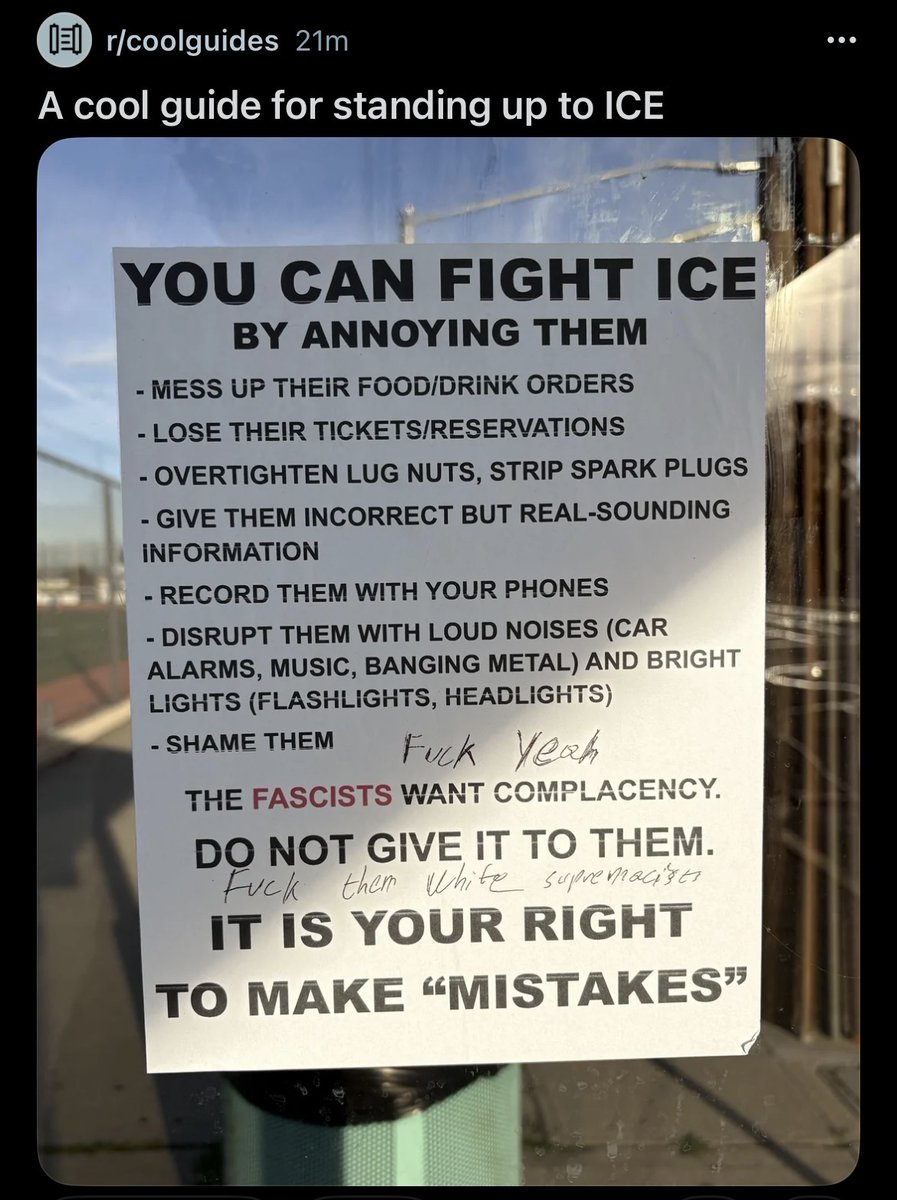 r/coolguides 21m
A cool guide for standing up to ICE
YOU CAN FIGHT ICE
BY ANNOYING THEM
- MESS UP THEIR FOOD/DRINK ORDERS
- LOSE THEIR TICKETS/RESERVATIONS
- OVERTIGHTEN LUG NUTS, STRIP SPARK PLUGS
- GIVE THEM INCORRECT BUT REAL-SOUNDING
INFORMATION
- RECORD THEM WITH YOUR PHONES
- DISRUPT THEM WITH LOUD NOISES (CAR
ALARMS, MUSIC, BANGING METAL) AND BRIGHT
LIGHTS (FLASHLIGHTS, HEADLIGHTS)
- SHAME THEM Fuck Yeah
THE FASCISTS WANT COMPLACENCY.
DO NOT GIVE IT TO THEM.
Fuck them White supremacists
IT IS YOUR RIGHT
TO MAKE “MISTAKES”